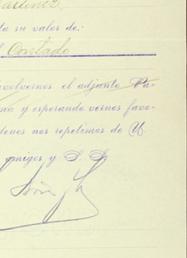 ta su valor de:
Contado
volvernos el adjunto Pa-
y esperando vernos favo-
denes nos repetimos de U
amigos y S. S.